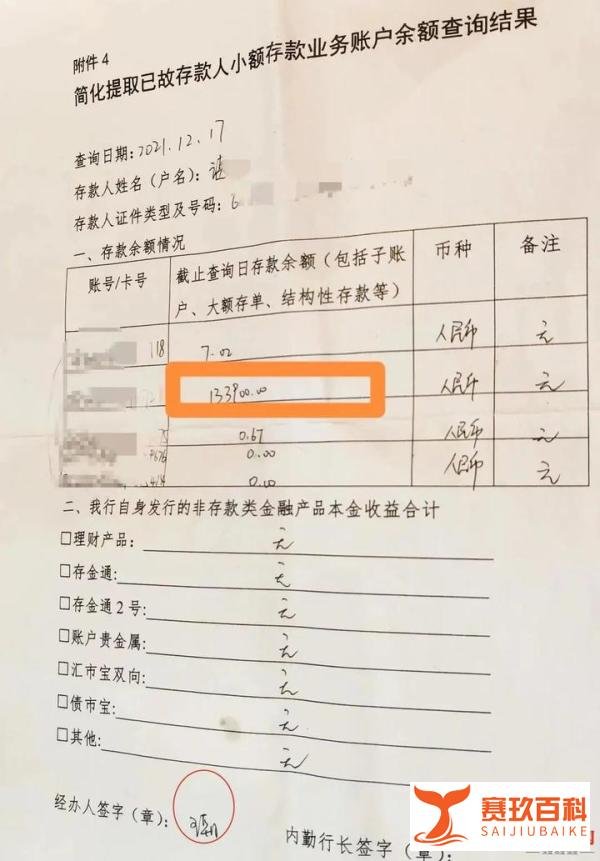 附件4
简化提取已故存款人小额存款业务账户余额查询结果
查询日期:2021.12.17
存款人姓名(户名):
存款人证件类型及号码:6
一、存款余额情况
账号/卡号 截止查询日存款余额(包括子账户、大额存单、结构性存款等) 币种 备注
118 7.02 人民币 元
133900.00 人民币 元
0.67 人民币 元
0.00 人民币 元
0.00
二、我行自身发行的非存款类金融产品本金收益合计
□理财产品: 元
□存金通: 元
□存金通2号: 元
□账户贵金属: 元
□汇市宝双向: 元
□债市宝: 元
□其他: 元
经办人签字(章):
内勤行长签字(章):
赛玖百科
SAIJIUBAIKE